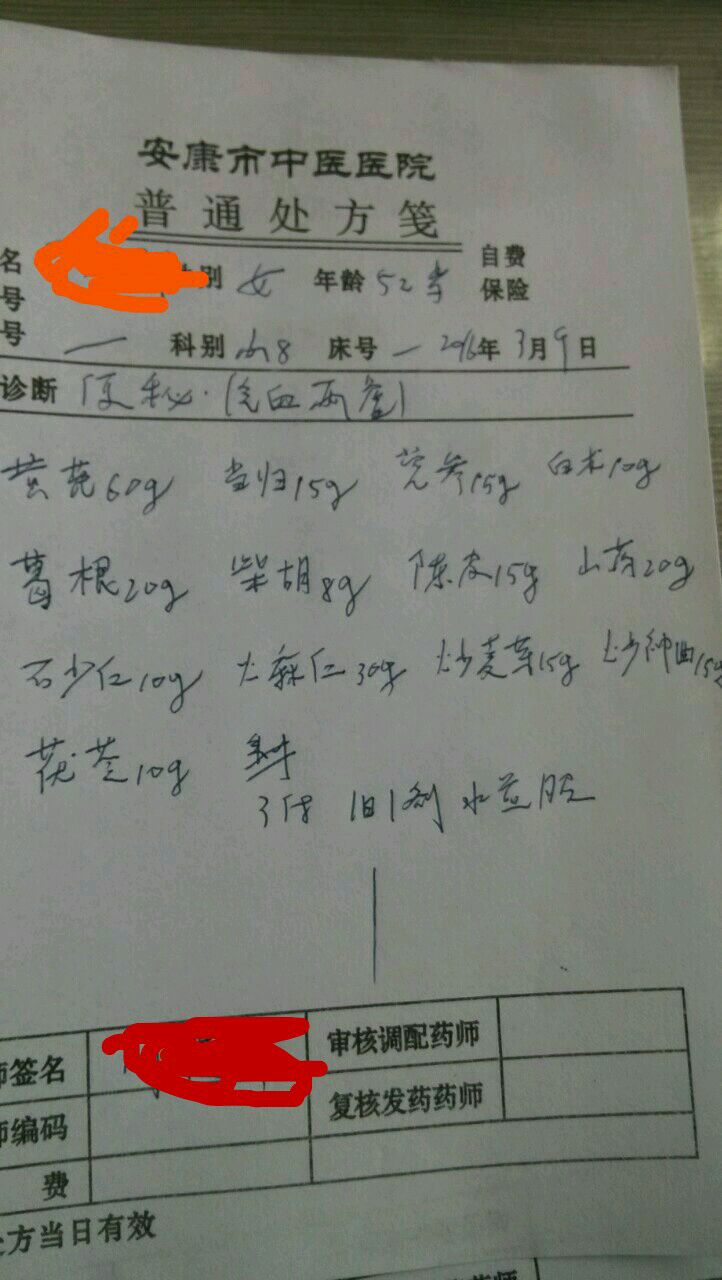 安康市中医医院
普通处方笺
名 别 女 年龄 52岁 自费
号 保险
号 一 科别 内8 床号 一 2016年 3月9日
诊断 便秘.(气血两虚)
黄芪60g 当归15g 党参15g 白术10g
葛根20g 柴胡8g 陈皮15g 山药20g
石少仁10g 火麻仁30g 炒麦芽15g 炒神曲15g
茯苓10g
3付 1日1剂 水煎服
师签名 审核调配药师
师编码 复核发药药师
费
处方当日有效
药师